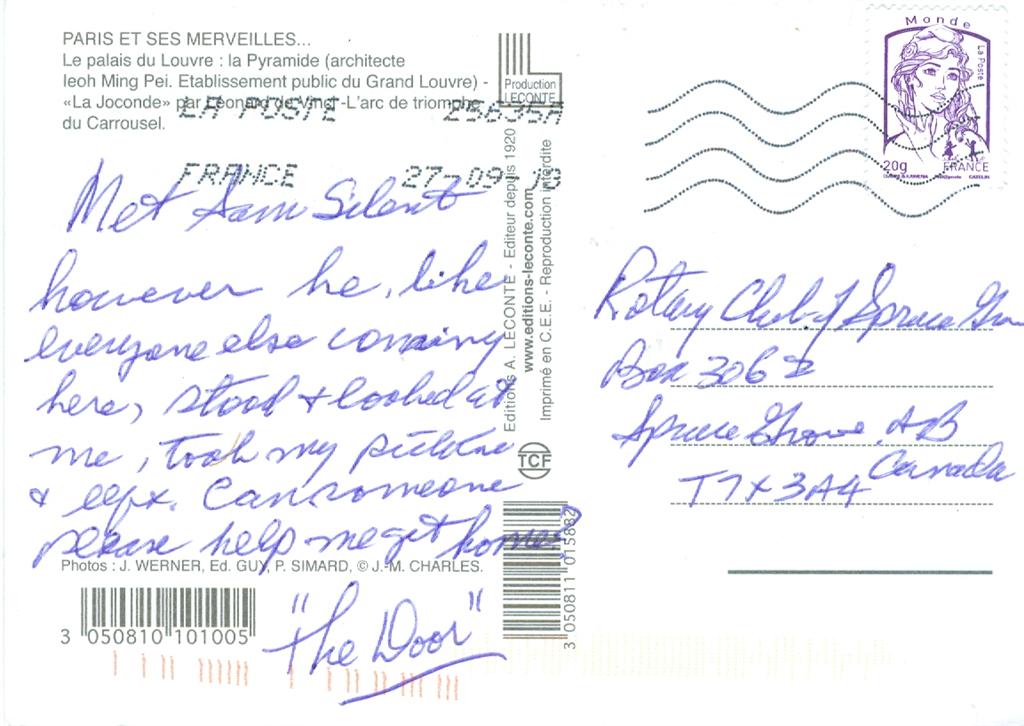 PARIS ET SES MERVEILLES...
Le palais du Louvre : la Pyramide (architecte
Ieoh Ming Pei. Etablissement public du Grand Louvre) -
«La Joconde» par Léonard de Vinci -L'arc de triomphe
du Carrousel.
Production
LECONTE
LA POSTE 25635A
FRANCE 27-09-
Monde
La Poste
20g
FRANCE
Met Sam Silent
however he, like
everyone else coming
here, stood + looked at
me, took my picture
+ left. Can someone
please help me get home?
"The Door"
Photos : J. WERNER, Ed. GUY, P. SIMARD, © J.-M. CHARLES.
3 050810 101005
Editions A. LECONTE - Editeur depuis 1920
www.editions-leconte.com
Imprimé en C.E.E. - Reproduction interdite
TCF
3 050811 015882
Rotary Club of Spruce Grov
Box 3062
Spruce Grove, AB
Canada
T7X 3A4